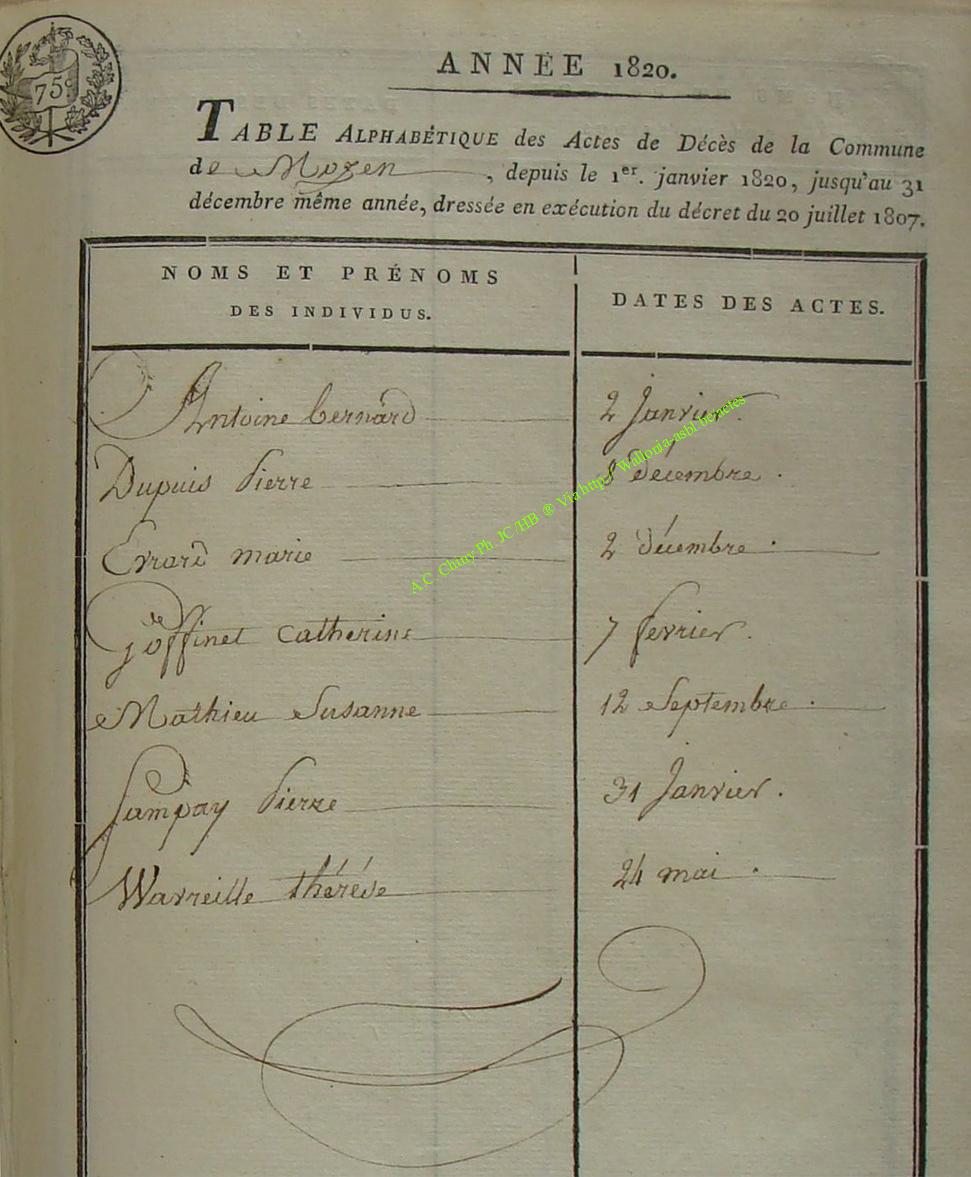 75c
ANNÉE 1820.
TABLE ALPHABÉTIQUE des Actes de Décès de la Commune
de Moyen, depuis le 1er. janvier 1820, jusqu'au 31
décembre même année, dressée en exécution du décret du 20 juillet 1807.
NOMS ET PRÉNOMS
DES INDIVIDUS.
DATES DES ACTES.
Antoine bernard 2 Janvier.
Dupuis Pierre 8 décembre.
Evrard marie 2 décembre.
Goffinet Catherine 7 fevrier.
Mathieu Susanne 12 Septembre.
Sampay Pierre 31 Janvier.
Wavreille thérése 24 mai.
A.C. Chiny Ph. JC/HB ® Via http:// Wallonia-asbl.be/actes